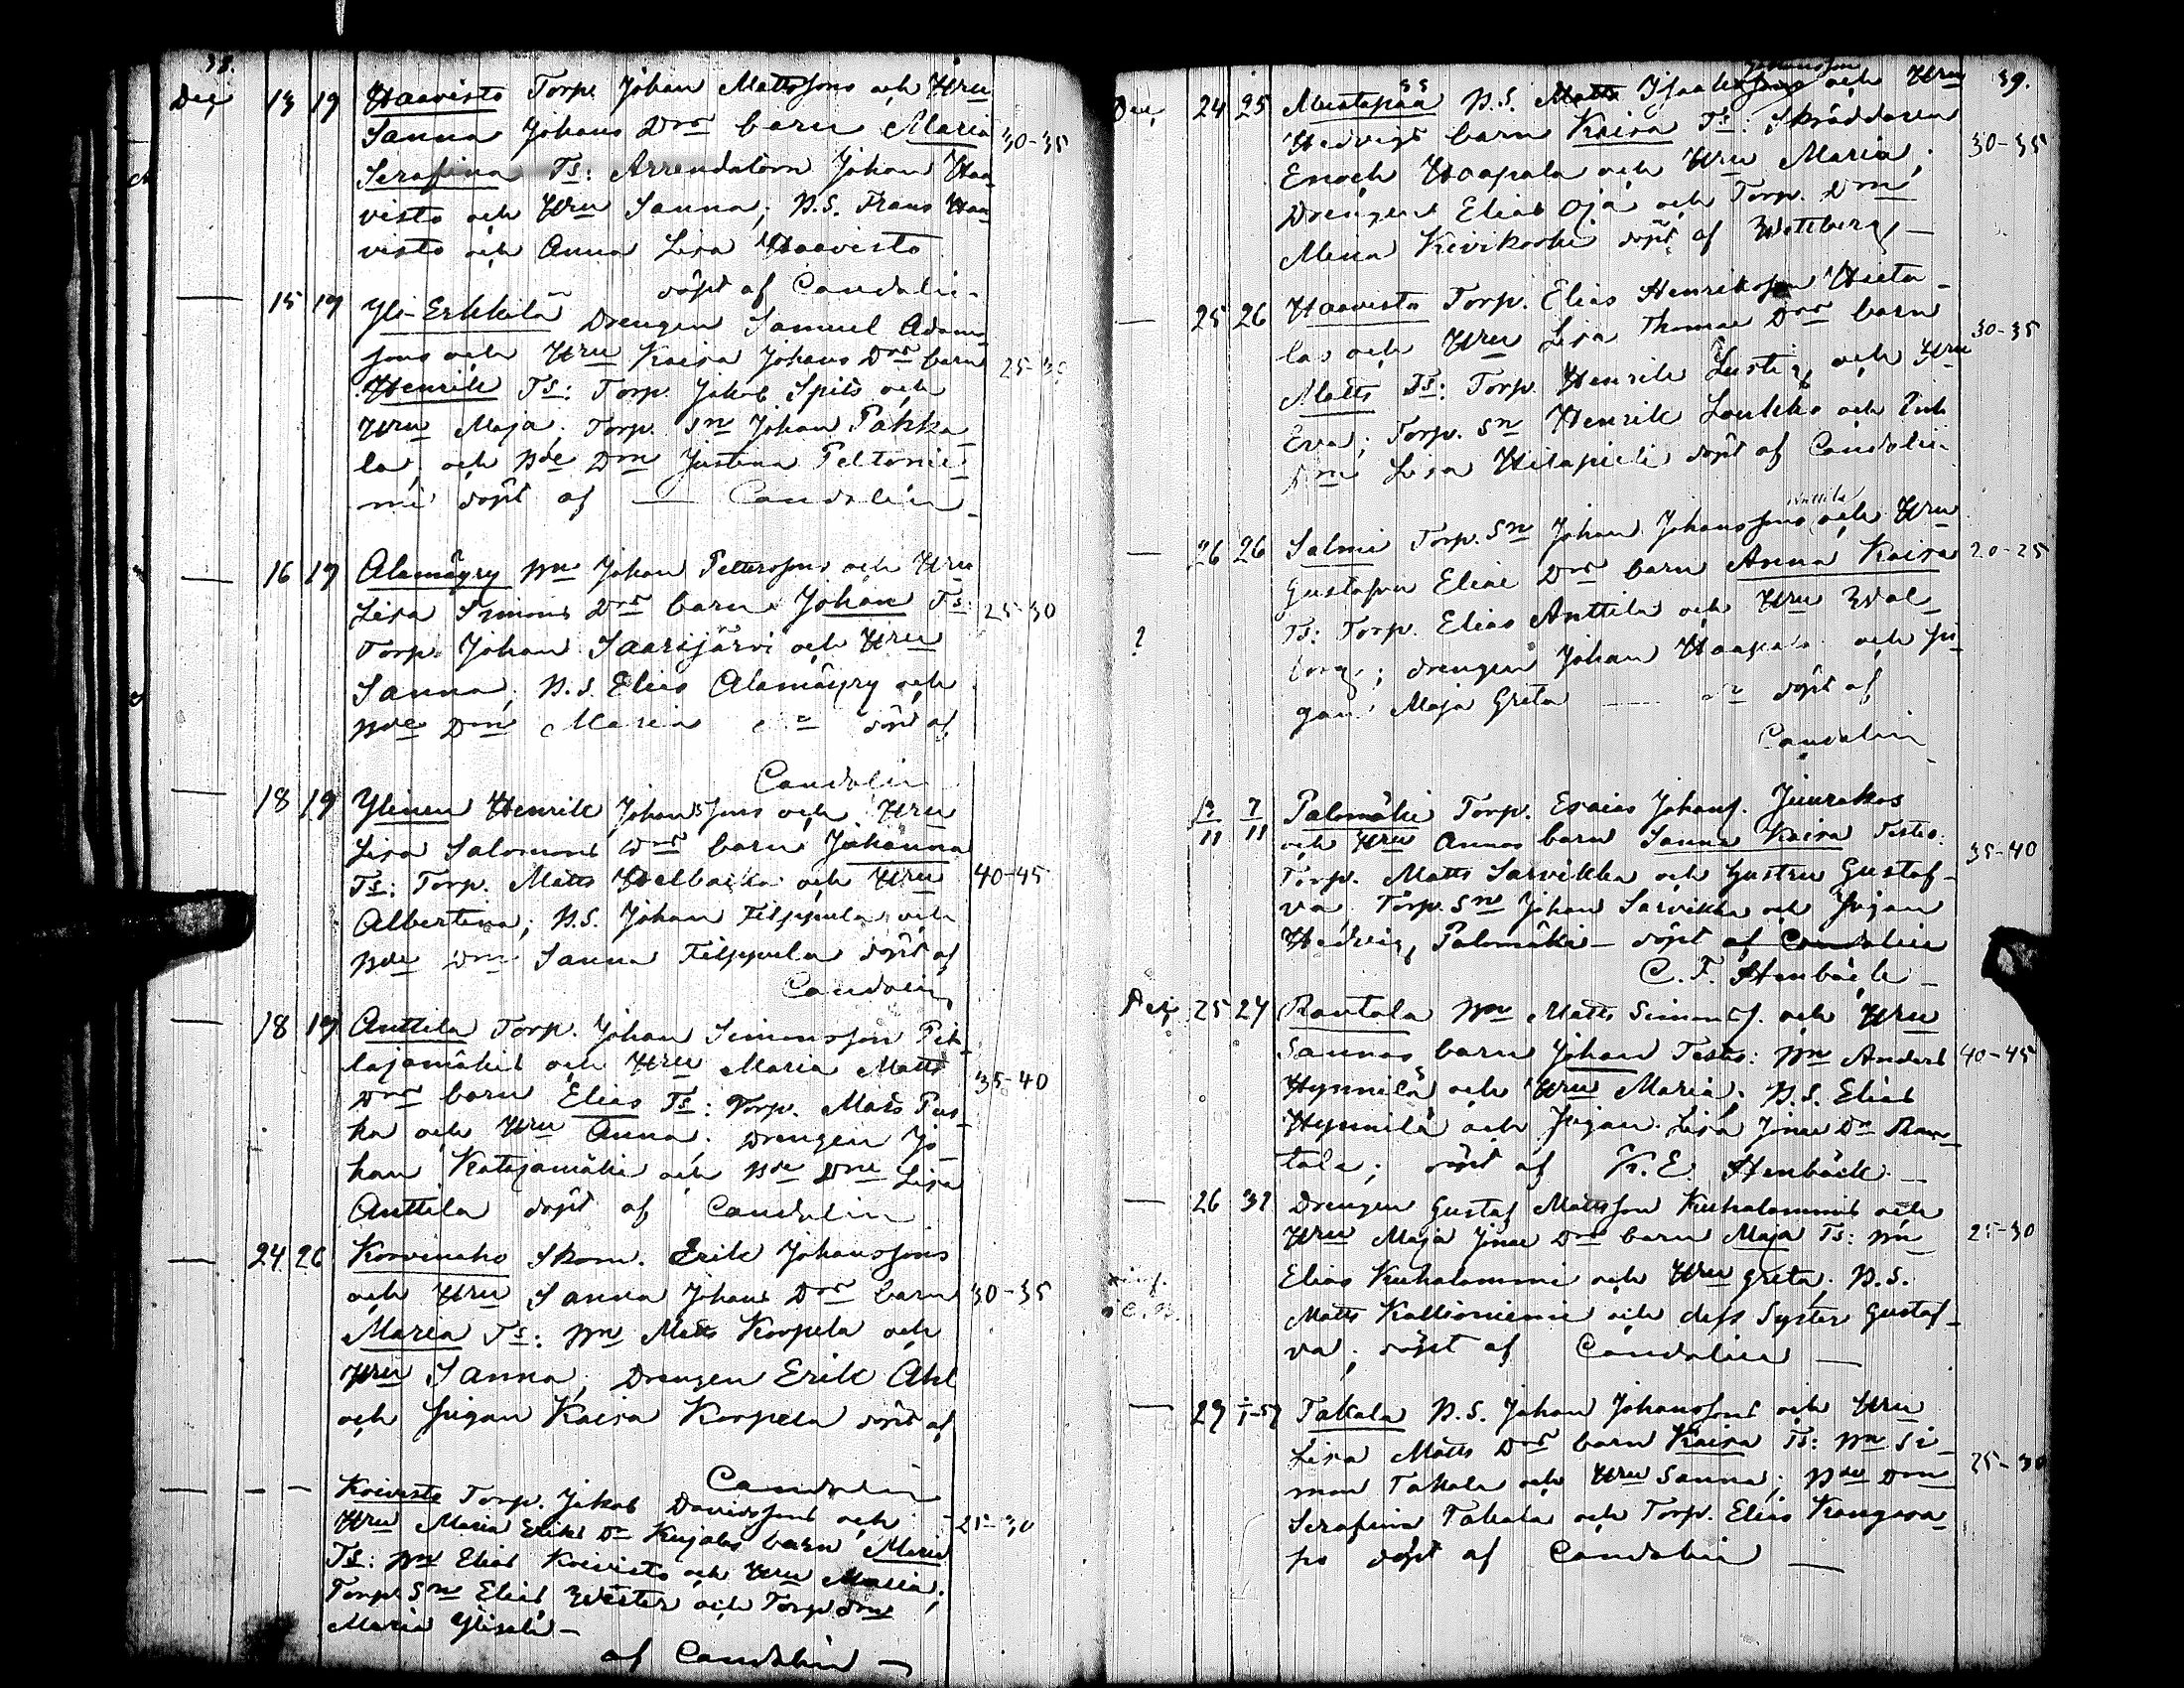 38.
Dec 13 19 Haavisto Torp. Johan Mattssons och Hru
Sanna Johans Drs barn Maria 30-35
Serafina Ts: Arrendatorn Johan Haa
visto och Hru Sanna; B.S. Frans Haa
visto och Anna Lisa Haavisto
döpt af Candolin
— 15 19 Yli-Erkkilä Drengen Samuel Adams
sons och Hru Kaisa Johans Drs barn 25-30
Henrik Ts: Torp. Jakob Spits och
Hru Maja; Torp. Sn Johan Pakka
la, och Bde Drn Justina Peltonie
mi döpt af — Candolin
— 16 19 Alamäyry Bn Johan Peterssons och Hru
Lisa Simons Drs barn Johan Ts: 25-30
Torp. Johan Saarijärvi och Hru
Sanna; B.S. Elias Alamäyry och
Bde Drn Maria döpt af
Candolin
— 18 19 Ylinen Henrik Johanssons och Hru
Lisa Salomons Drs barn Johanna
Ts: Torp. Matts Hallbacka och Hru 40-45
Albertina; B.S. Johan Filppula och
Bde Drn Sanna Filppula döpt af
Candolin
— 18 19 Anttila Torp. Johan Simonsson Pih
lajamäkis och Hru Maria Matts
Drs barn Elias Ts: Torp. Mats Pus 35-40
ka och Hru Anna; Drengen Jo
han Katajamäki och Bde Drn Lisa
Anttila döpt af Candolin
— 24 26 Korvineho Skom. Erik Johanssons
och Hru Sanna Johans Drs barn 30-35
Maria Ts: Bn Matts Korpela och
Hru Sanna, Drengen Erik Ahl
och Pigan Kaisa Korpela döpt af
Candolin
— — — Koivisto Torp. Jakob Davidssons och 25-30
Hru Maria Eriks Dr Kujalas barn Maria
Ts: Bn Elias Koivisto och Hru Maria;
Torp. Sn Elias Wester och Torp. Drn
Maria
af Candolin —
39.
Dec 24 25 Mustapää B.S. Isaakssons och Hru
Johansson
Hedvigs barn Kaisa Ts: Skräddaren 30-35
Enoch Haapala och Hru Maria;
Drengen Elias Oja och Torp. Drn
Mina Kivikoski döpt af Wettberg —
— 25 26 Haavisto Torp. Elias Henriksson Hieta
las och Hru Lisa Thomae Drs barn 30-35
Matts Ts: Torp. Henrik Lustig och Hru
Eva; Torp. Sn Henrik Loukko och Inh
Drn Lisa döpt af Candolin
— 26 26 Salmi Torp. Sn Johan Johanssons och Hru 20-25
Anttila
Gustafva Eliae Drs barn Anna Kaisa
Ts: Torp. Elias Anttila och Hru Wal
? borg; drengen Johan Haapala och Pi
gan Maja Greta — döpt af
Candolin
11 7/11 Palomäki Torp. Esaias Johans. Juurakos
och Hru Annas barn Sanna Kaisa Testes: 35-40
Torp. Matts Sarvikka och Hustru Gustaf
va, Torp. Sn Johan Sarvikka och Pigan
Hedvig Palomäki — döpt af Candolin
C. F. Stenbäck —
Dec 25 27 Rautala Bn Matts Simonss. och Hru
Sannas barn Johan Testes: Bn Anders 40-45
Hynnilä och Hru Maria; B.S. Elias
Hynnilä och Pigan Lisa Jonae Dr Rau
tala; döpt af K. E. Stenbäck —
— 26 31 Drengen Gustaf Mattsson Kuhalammis och
Hru Maja Jonae Drs barn Maja Ts: Bn 25-30
Elias Kuhalammi och Hru Greta; B.S.
Matts Kallioniemi och dess Syster Gustaf
va; döpt af Candolin —
— 29 1/1-57 Takala B.S. Johan Johanssons och Hru
Lisa Matts Drs barn Kaisa Ts: Bn Si 25-30
mon Takala och Hru Sanna; Bde Drn
Serafina Takala och Torp. Elias Kangasa
po döpt af Candolin —